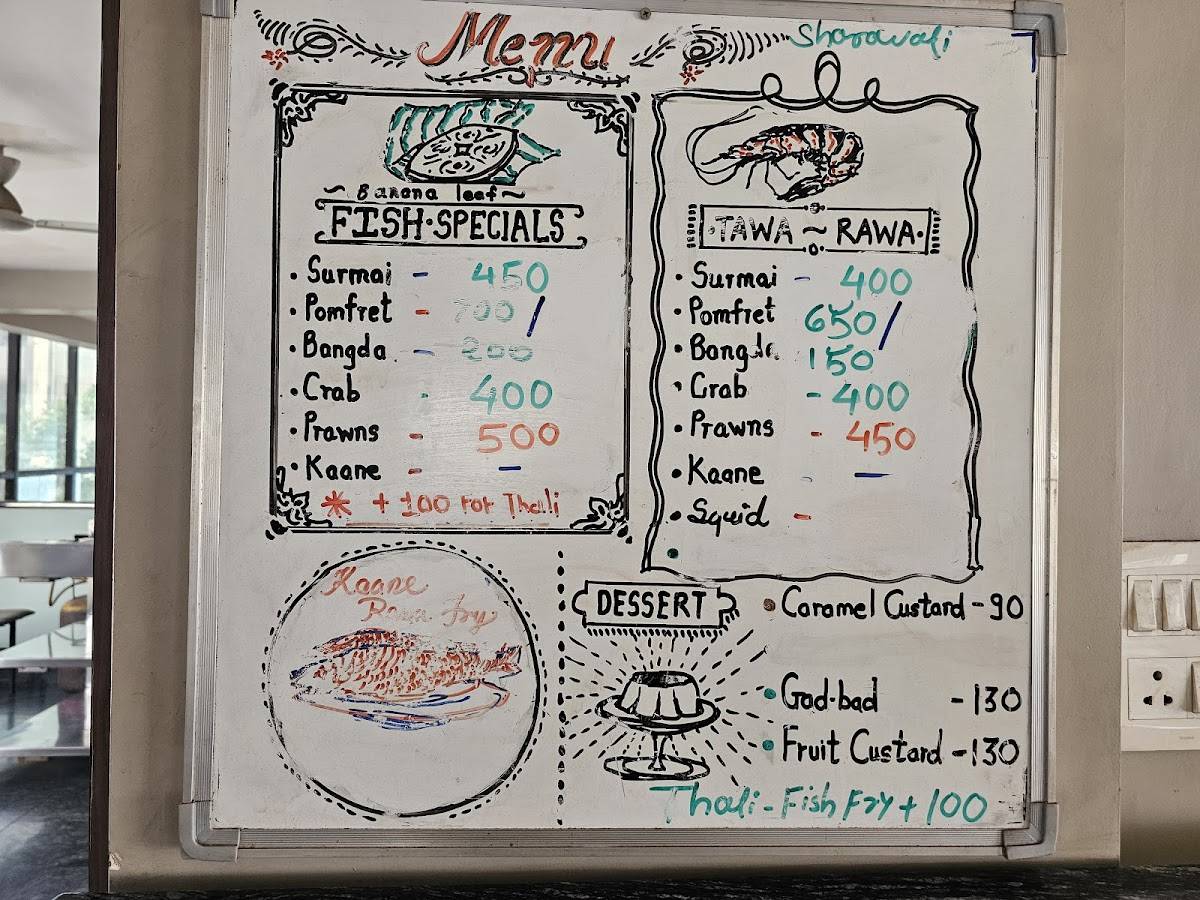 Menu
Sharavali
~ Banana leaf ~
FISH·SPECIALS
• Surmai - 450
• Pomfret - 700 /
• Bangda - 200
• Crab - 400
• Prawns - 500
• Kaane - -
* + 100 for Thali
TAWA ~ RAWA·
• Surmai - 400
• Pomfret 650/
• Bangda 150
• Crab - 400
• Prawns - 450
• Kaane - -
• Squid -
Kaane
Rawa fry
DESSERT
• Caramel Custard - 90
• Gad-bad - 130
• Fruit Custard - 130
Thali - Fish Fry + 100